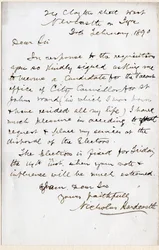 Newcastle on Tyne
20th February 1890
Dear Sir
In response to the requisition
you so kindly signed asking me
to become a Candidate for the vacant
office of City Councillor for St
Johns Ward, in which I have been
and resided all my life I have
much pleasure in acceding to your
request & place my services at the
disposal of the Electors
The Election is fixed for Friday
the 14th Inst. when your vote &
influence will be much esteemed
I am Dear Sir
Yours faithfully
Nicholas